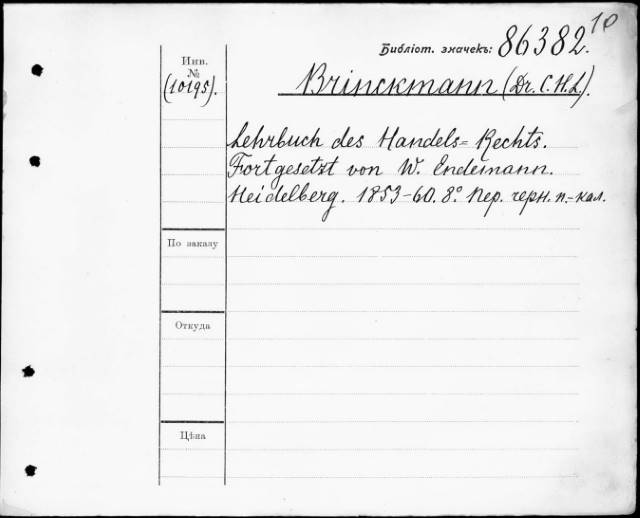 10
Библіот. значекъ: 86382.
Инв.
№
(10195).
Brinckmann (Dr. C. H. L.).
Lehrbuch des Handels= Rechts.
Fortgesetzt von W. Endemann.
Heidelberg. 1853-60. 8.° Пер. черн. п.-кал.
По заказу
Откуда
Цѣна